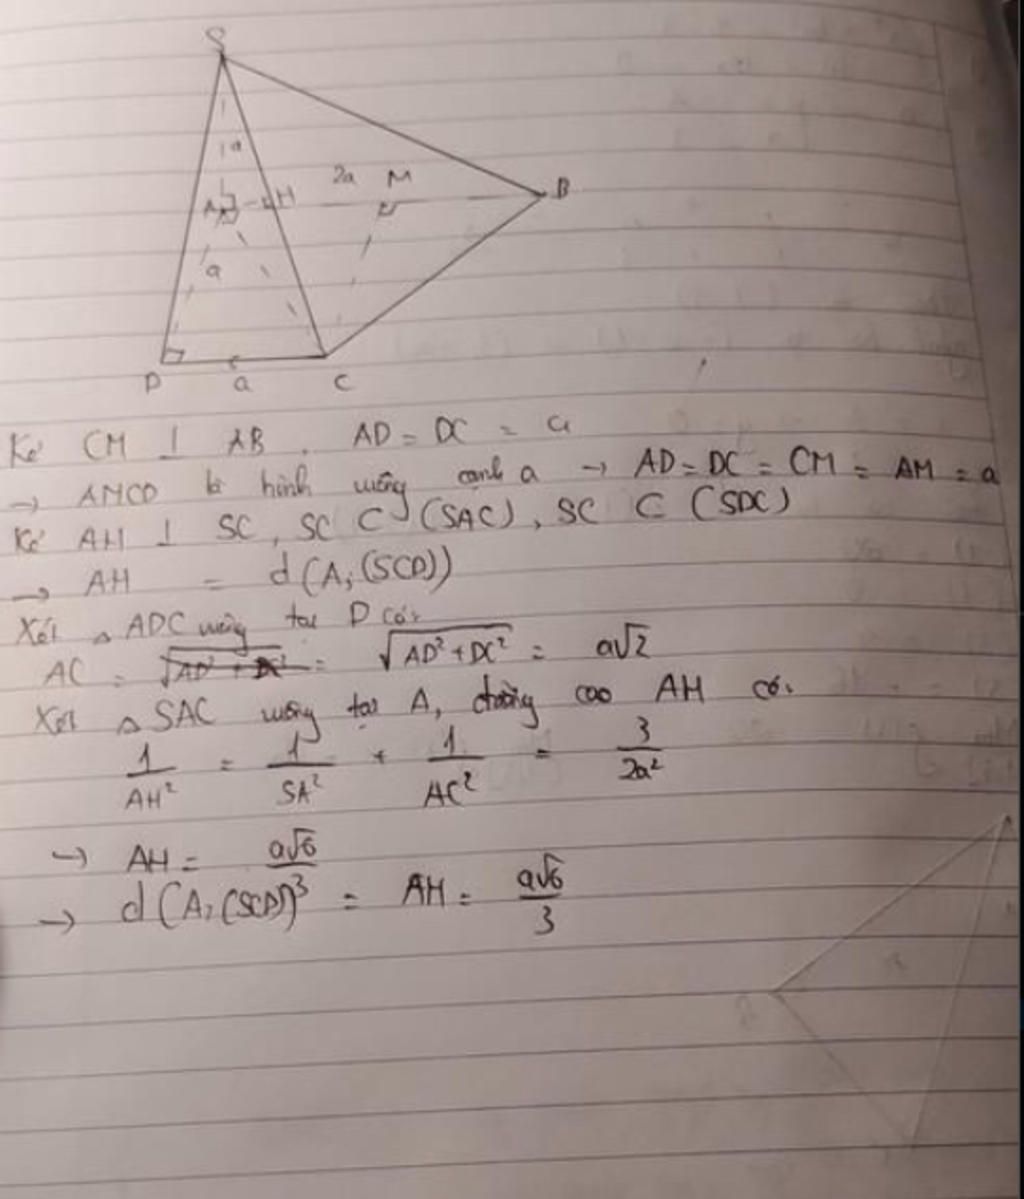 S
a
2a M
A H B
a
D a C
Kẻ CM ⊥ AB , AD = DC = a
→ AMCD là hình vuông cạnh a → AD = DC = CM = AM = a
Kẻ AH ⊥ SC, SC ⊂ (SAC), SC ⊂ (SDC)
→ AH = d(A; (SCD))
Xét △ ADC vuông tại D có:
AC = √(AD² + DC²) = √(AD² + DC²) = a√2
Xét △ SAC vuông tại A, đường cao AH có:
1/AH² = 1/SA² + 1/AC² = 3/2a²
→ AH = a√6/3
→ d(A, (SCD)) = AH = a√6/3